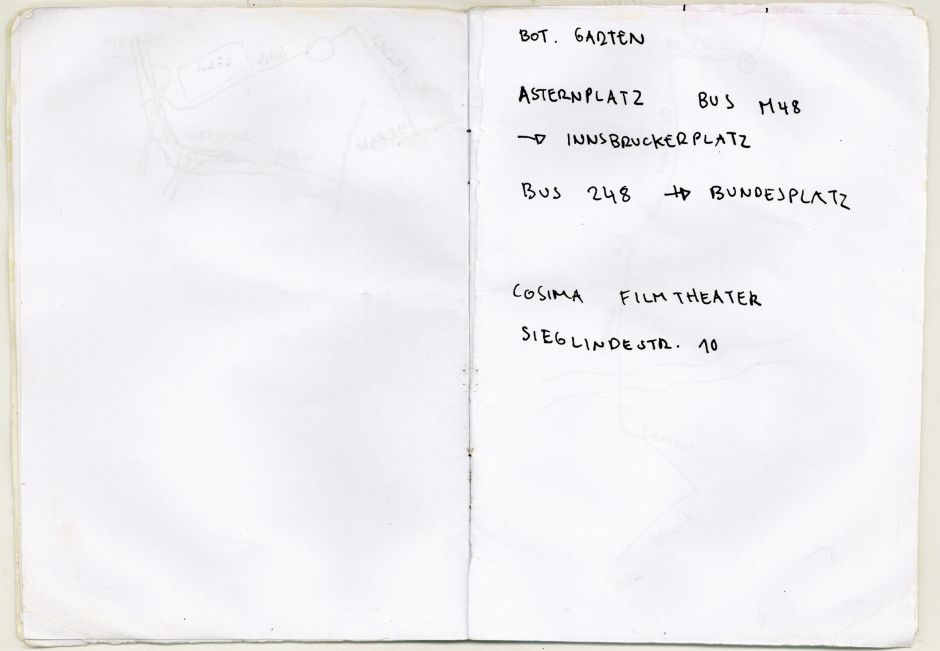 BOT. GARTEN
ASTERNPLATZ BUS M48
→ INNSBRUCKERPLATZ
BUS 248 → BUNDESPLATZ
COSIMA FILMTHEATER
SIEGLINDESTR. 10